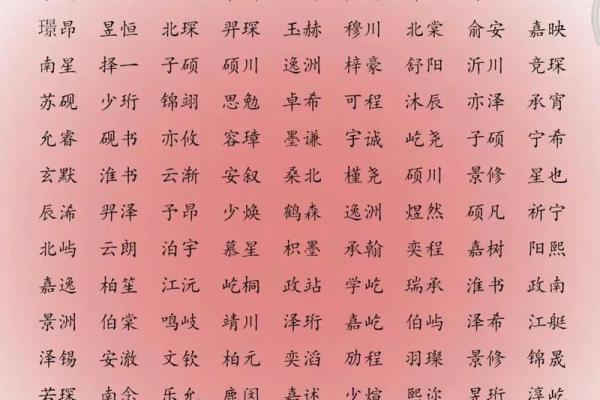 璟昂 昱恒 北琛 羿琛 玉赫 穆川 北棠 俞安 嘉映
南星 择一 子硕 硕川 逸洲 梓豪 舒阳 沂川 竞琛
苏砚 少珩 锦翊 思勉 卓希 可程 沐辰 亦泽 承宵
允睿 砚书 亦攸 容璋 墨谦 宇诚 屹尧 子硕 宁希
玄默 淮书 云渐 安叙 桑北 槿尧 硕川 景修 星也
辰浠 羿泽 予昂 少焕 鹤森 逸洲 煜然 硕凡 祈宁
北屿 云朗 泊宇 慕星 枳墨 承翰 奕程 嘉树 阳熙
嘉逸 柏笙 江沅 屹桐 政站 学屹 瑞承 淮书 政南
景洲 伯棠 鸣岐 靖川 泽珩 嘉屹 伯屿 泽希 江艇
泽锡 安澈 文钦 柏元 奕滔 劢程 羽璨 景修 锦晟
若琛 南念 乐允 鹿闵 嘉述 少煊 熙弥 昱珩 淳屹